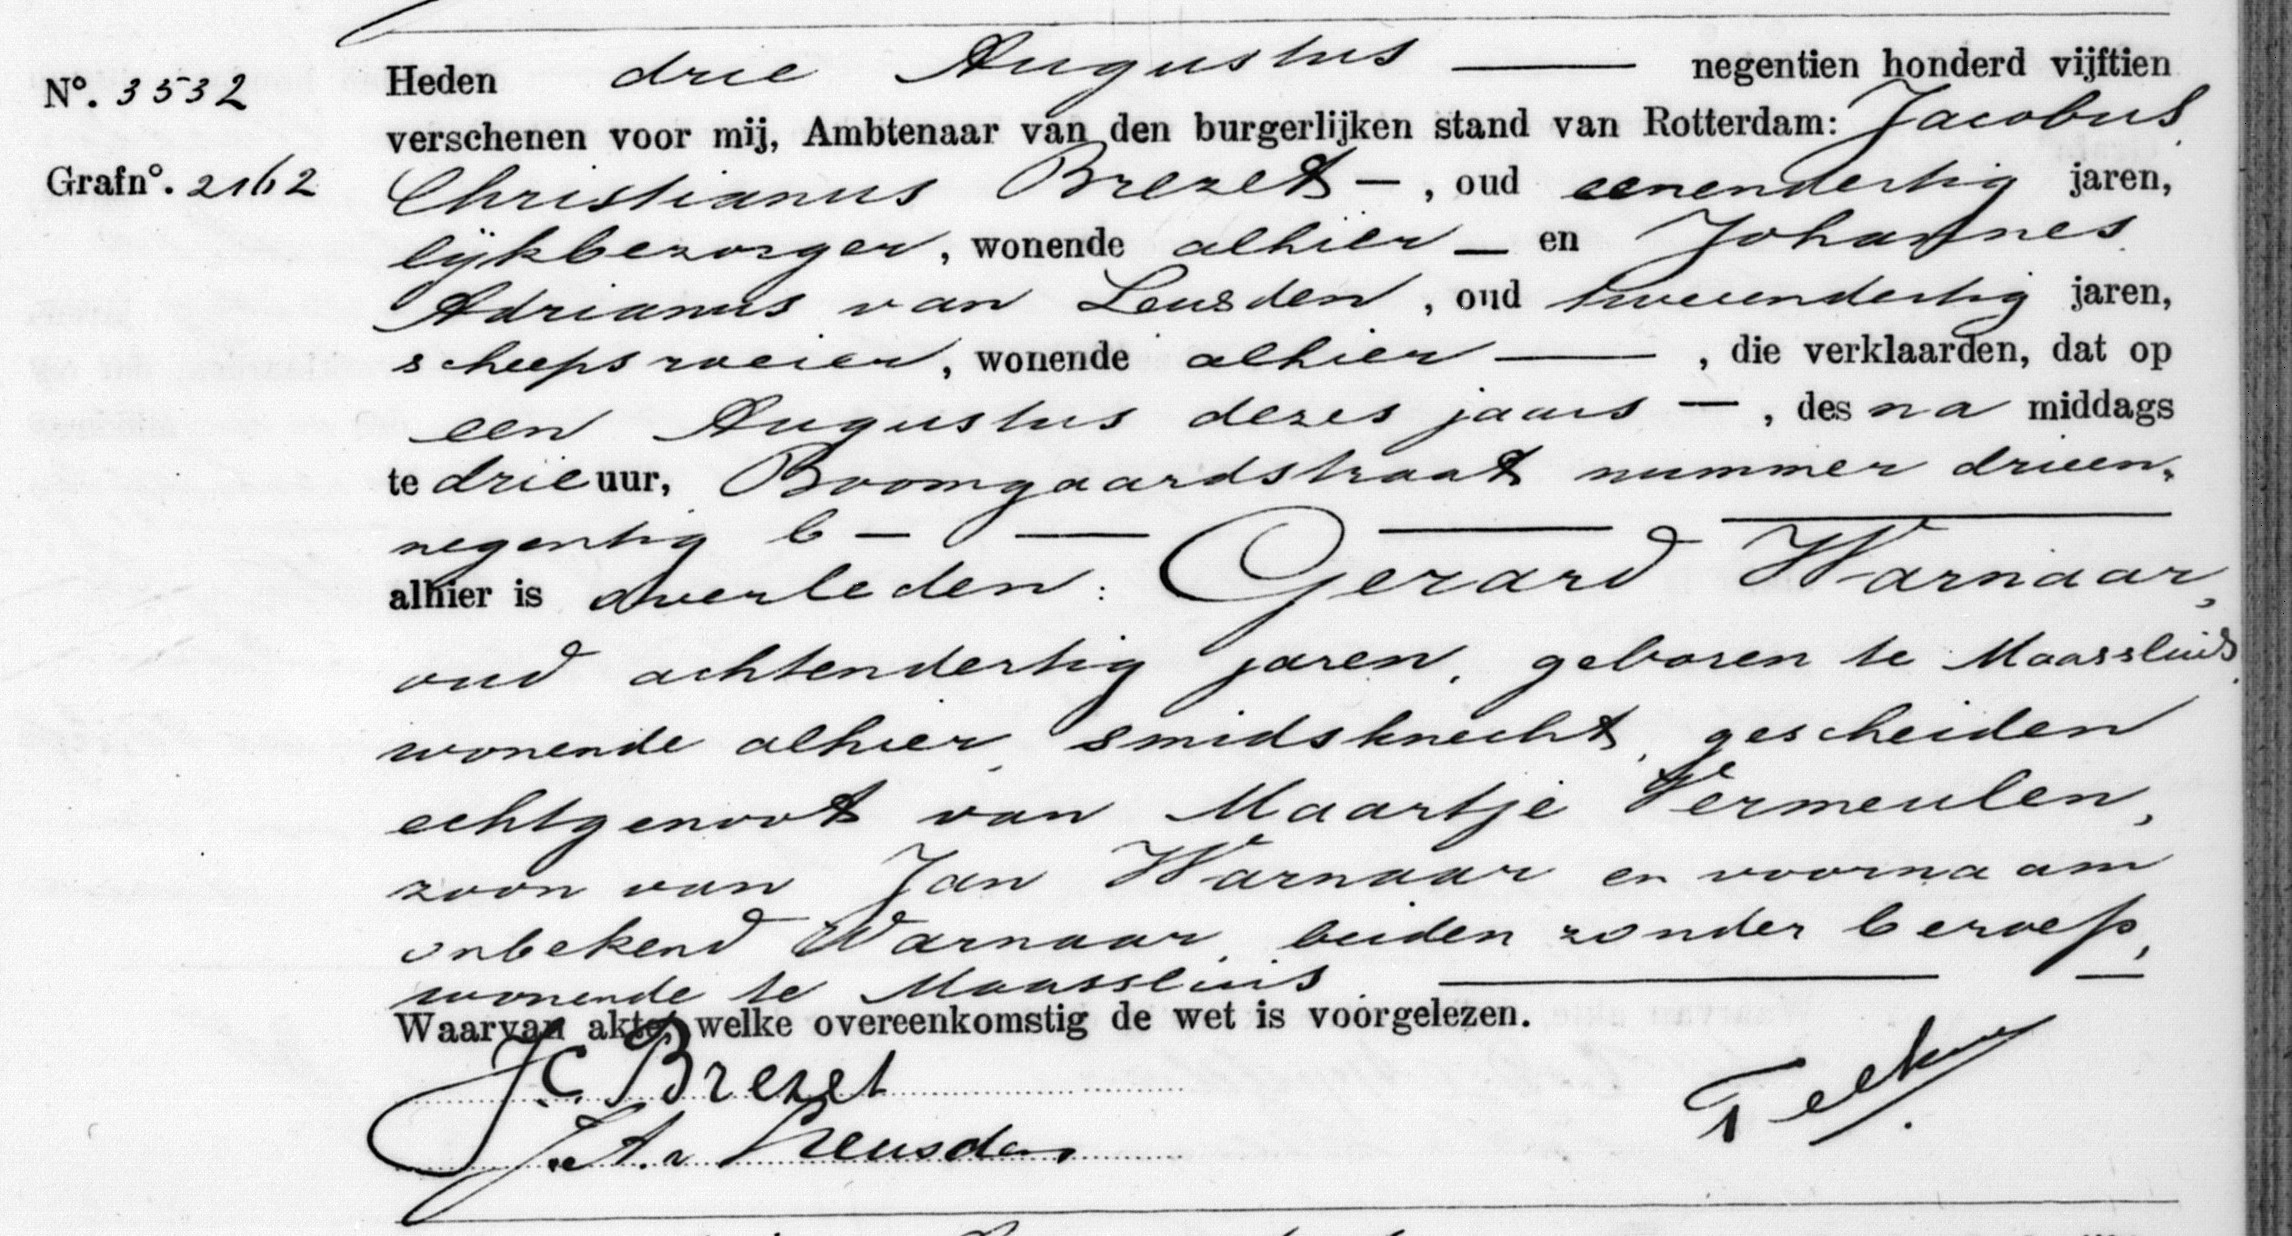 Nº. 3532
Grafnº. 2162
Heden drie Augustus — negentien honderd vijftien
verschenen voor mij, Ambtenaar van den burgerlijken stand van Rotterdam: Jacobus
Christianus Brezet —, oud eenendertig jaren,
lijkbezorger, wonende alhier — en Johannes
Adrianus van Leusden, oud tweeendertig jaren,
scheepsroeier, wonende alhier —, die verklaarden, dat op
een Augustus dezes jaars —, des na middags
te drie uur, Boomgaardstraat nummer drieen-
negentig b — —
alhier is overleden: Gerard Warnaar,
oud achtendertig jaren, geboren te Maassluis,
wonende alhier, smidsknecht, gescheiden
echtgenoot van Maartje Vermeulen,
zoon van Jan Warnaar en voornaam
onbekend Warnaar, beiden zonder beroep,
wonende te Maassluis. —
Waarvan akte, welke overeenkomstig de wet is voorgelezen.
J.C. Brezet
J.A. v Leusden